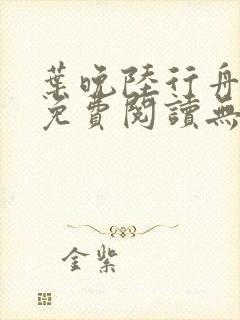 葉晚陸行舟
免費閱讀無
金紫